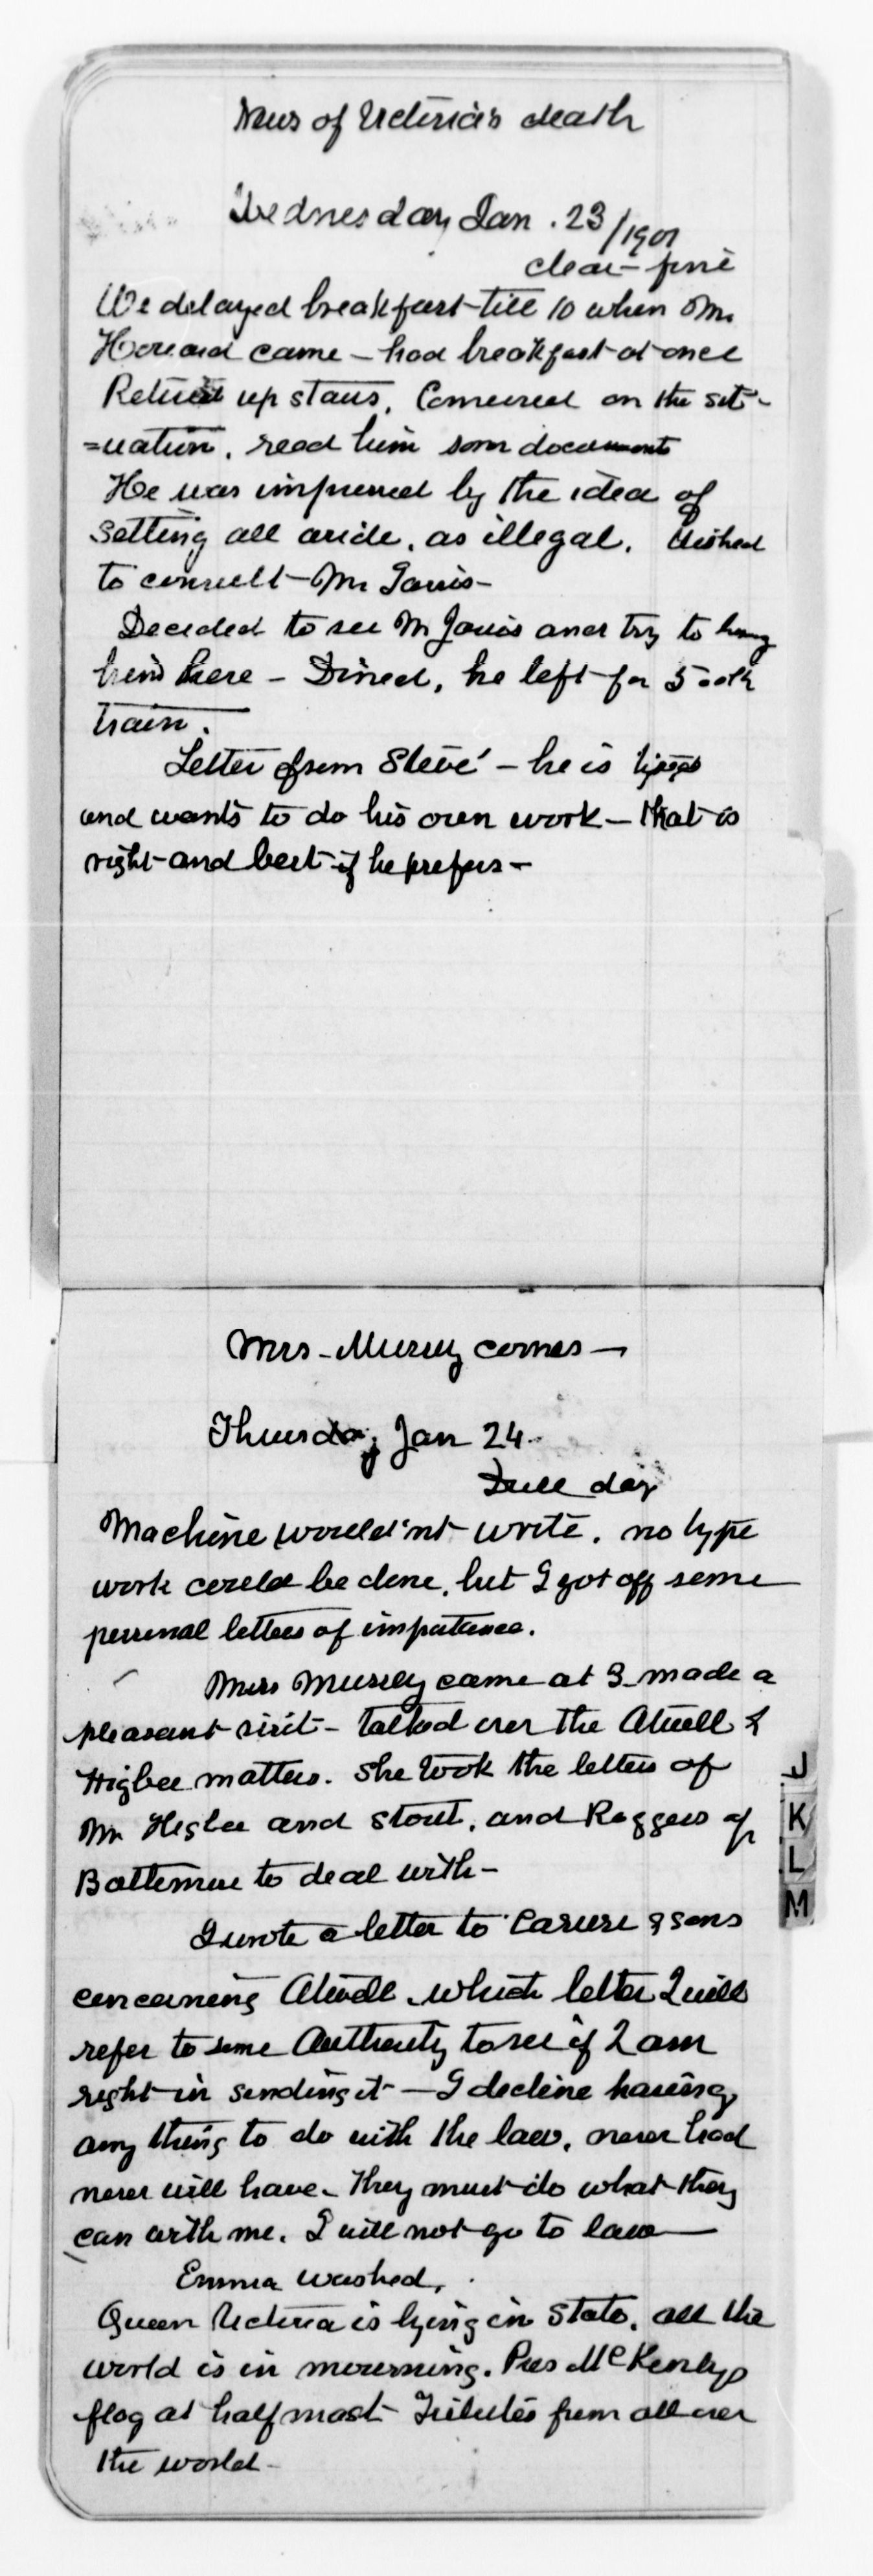 News of Victoria's death
Wednesday Jan. 23/1901
clear - fine
We delayed breakfast till 10 when Mr
Howard came - had breakfast at once
Retired up stairs. Conversed on the sit-
=uation. read him some documents
He was impressed by the idea of
setting all aside, as illegal. Wished
to consult Mr
Decided to see Mr and try to bring
him here - Dined, he left for 5 oclk
train.
Letter from Steve - he is
and wants to do his own work - that is
right and best if he prefers -
Mrs - Mussey comes -
Thursday Jan 24
Dull day
Machine would'nt write. no type
work could be done, but I got off some
personal letters of importance.
Mrs Mussey came at 3 made a
pleasant visit - Talked over the Atwell &
Higbee matters. She took the letters of
Mr Higbee and Stout, and Roggers of
Baltimore to deal with -
I wrote a letter to & sons
concerning Atwell which letter I will
refer to some Authority to see if I am
right in sending it - I decline having
any thing to do with the law, never had
never will have. They must do what they
can with me. I will not go to law -
Emma washed.
Queen Victoria is lying in State. all the
world is in mourning. Pres McKenlys
flag at half mast Tributes from all over
the world -
J
K
L
M